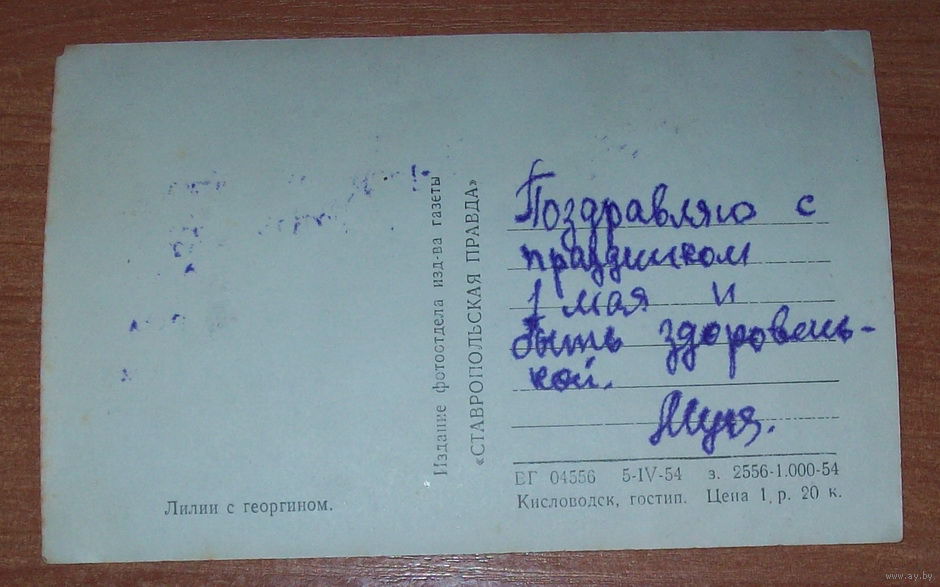 Поздравляю с
праздником
1 мая и
быть здоровень-
кой.
Муся.
Издание фотоотдела изд-ва газеты
«СТАВРОПОЛЬСКАЯ ПРАВДА»
ВГ 04556 5-IV-54 з. 2556-1.000-54
Кисловодск, гостип. Цена 1 р. 20 к.
Лилии с георгином.
www.ay.by